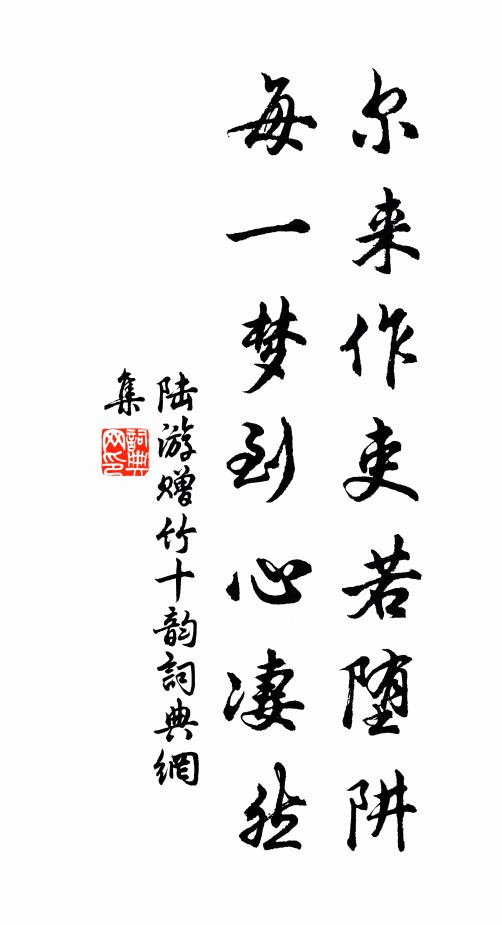 尔来作吏若堕阱
每一梦到心凄然
陆游赠竹十韵詞典網
集
詞典
网印